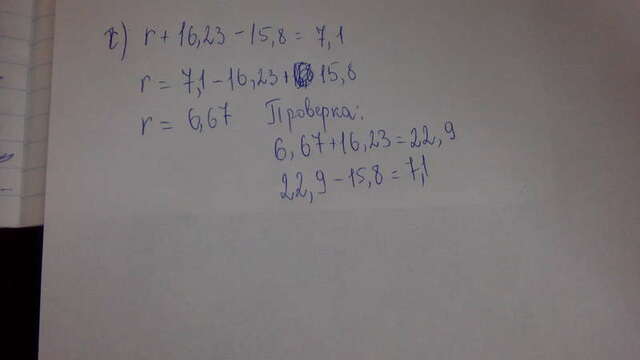 г) r + 16,23 - 15,8 = 7,1
r = 7,1 - 16,23 + 15,8
r = 6,67 Проверка:
6,67 + 16,23 = 22,9
22,9 - 15,8 = 7,1